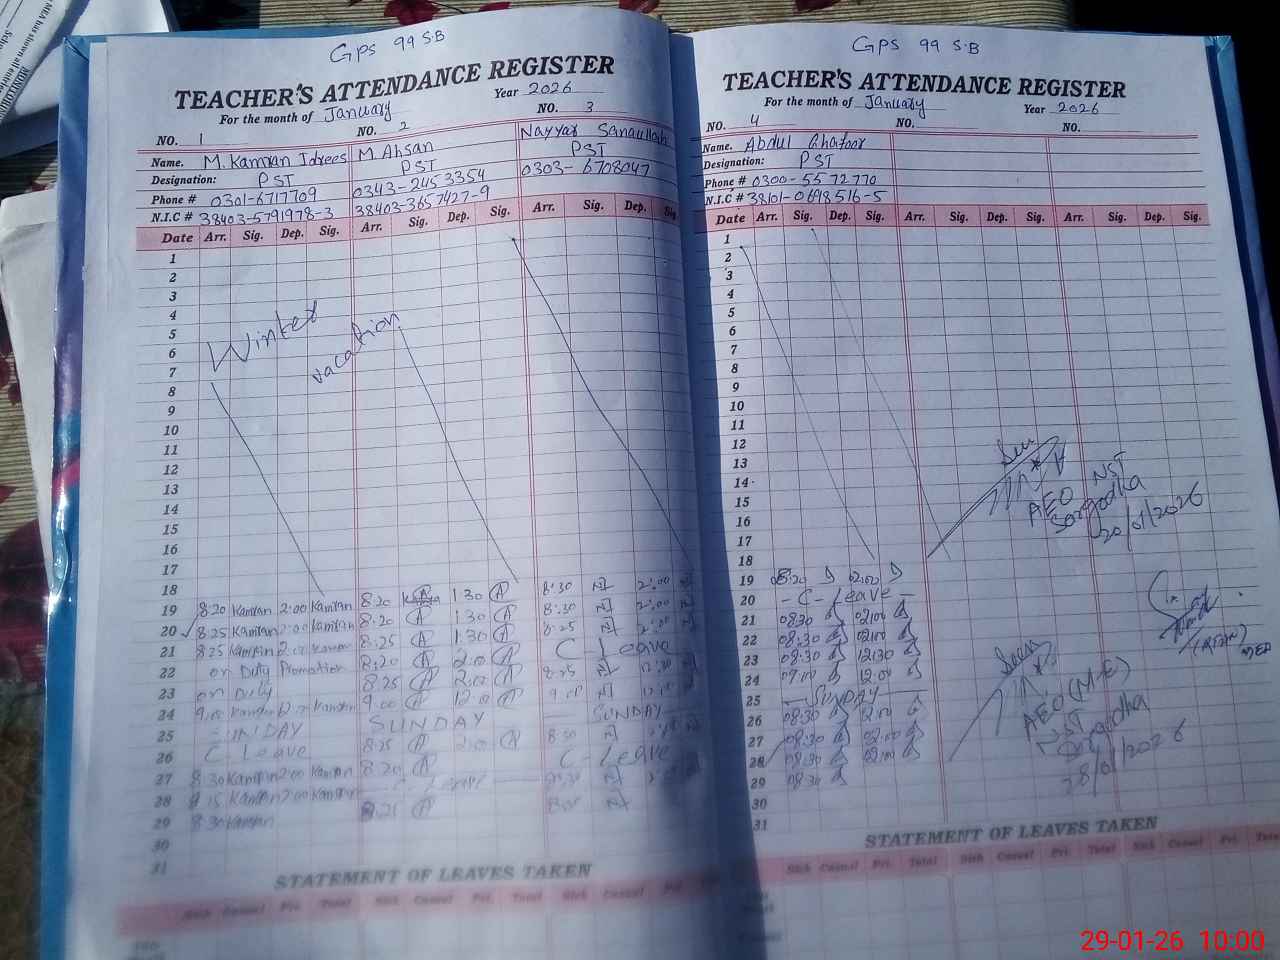 GPS 99 S.B
TEACHER'S ATTENDANCE REGISTER
For the month of January Year 2026
NO. 1 NO. 2 NO. 3
Name. M. Kamran Idrees M. Ahsan Nayyar Sanaullah
Designation: PST PST PST
Phone # 0301-6717709 0343-2453354 0303-6708047
N.I.C # 38403-5791978-3 38403-3657427-9
Date Arr. Sig. Dep. Sig. Arr. Sig. Dep. Sig. Arr. Sig. Dep.
1
2
3
4
5
6
7
8
9
10
11
12
13
14
15
16
17
18
Winter
vacation
19 8:20 Kamran 2:00 Kamran 8:20 A 1:30 A 8:30 2:00
20 8:25 Kamran 2:00 Kamran 8:20 A 1:30 A 8:30 2:00
21 8:25 Kamran 2:00 Kamran 8:25 A 1:30 A 8:25 2:00
22 on Duty Promotion 8:20 A 2:00 A C - Leave
23 on Duty 8:25 A 2:00 A 8:25 12:30
24 9:00 Kamran Kamran 9:00 A 12:00 A 9:00 12:00
25 SUNDAY SUNDAY SUNDAY
26 C Leave 8:25 A 2:00 A 8:30
27 8:30 Kamran 2:00 Kamran 8:20 A C - Leave
28 8:15 Kamran 2:00 Kamran C - Leave 8:30
29 8:30 Kamran 8:25 A
30
31
STATEMENT OF LEAVES TAKEN
Sick Casual Pri. Total Sick Casual Pri. Total Sick Casual Pri.
GPS 99 S.B
TEACHER'S ATTENDANCE REGISTER
For the month of January Year 2026
NO. 4 NO. NO.
Name. Abdul Ghafoor
Designation: PST
Phone # 0300-5572770
N.I.C # 38101-0698516-5
Date Arr. Sig. Dep. Sig. Arr. Sig. Dep. Sig. Arr. Sig. Dep. Sig.
1
2
3
4
5
6
7
8
9
10
11
12
13
14
15
16
17
18
Seen
AEO NST
Sargodha
20/01/2026
19 08:20 02:00
20 - C - Leave -
21 08:30 02:00
22 08:30 02:00
23 08:30 12:30
24 09:00 12:00
25 - SUNDAY -
26 08:30 02:00
27 08:30 02:00
28 08:30 02:00
29 08:30
30
31
Seen
AEO (M-E)
Sargodha
28/01/2026
STATEMENT OF LEAVES TAKEN
Sick Casual Pri. Total Sick Casual Pri. Total Sick Casual Pri. Total
29-01-26 10:00